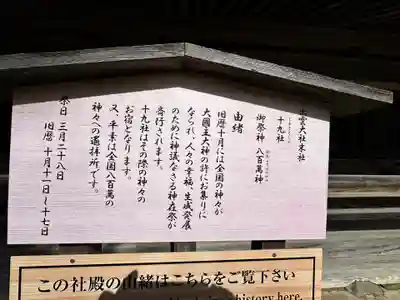 出雲大社末社
十九社
御祭神 八百萬神
由緒
旧暦十月には全国の神々が
大國主大神の許にお集りに
なられ、人々の幸福、生成発展
のために神議なさる神在祭が
斎行されます。
十九社はその際の神々の
お宿となります。
又、平素は全国八百萬の
神々への遥拝所です。
祭日 三月二十八日
旧暦 十月十一日～十七日
この社殿の由緒はこちらをご覧下さい
history here.